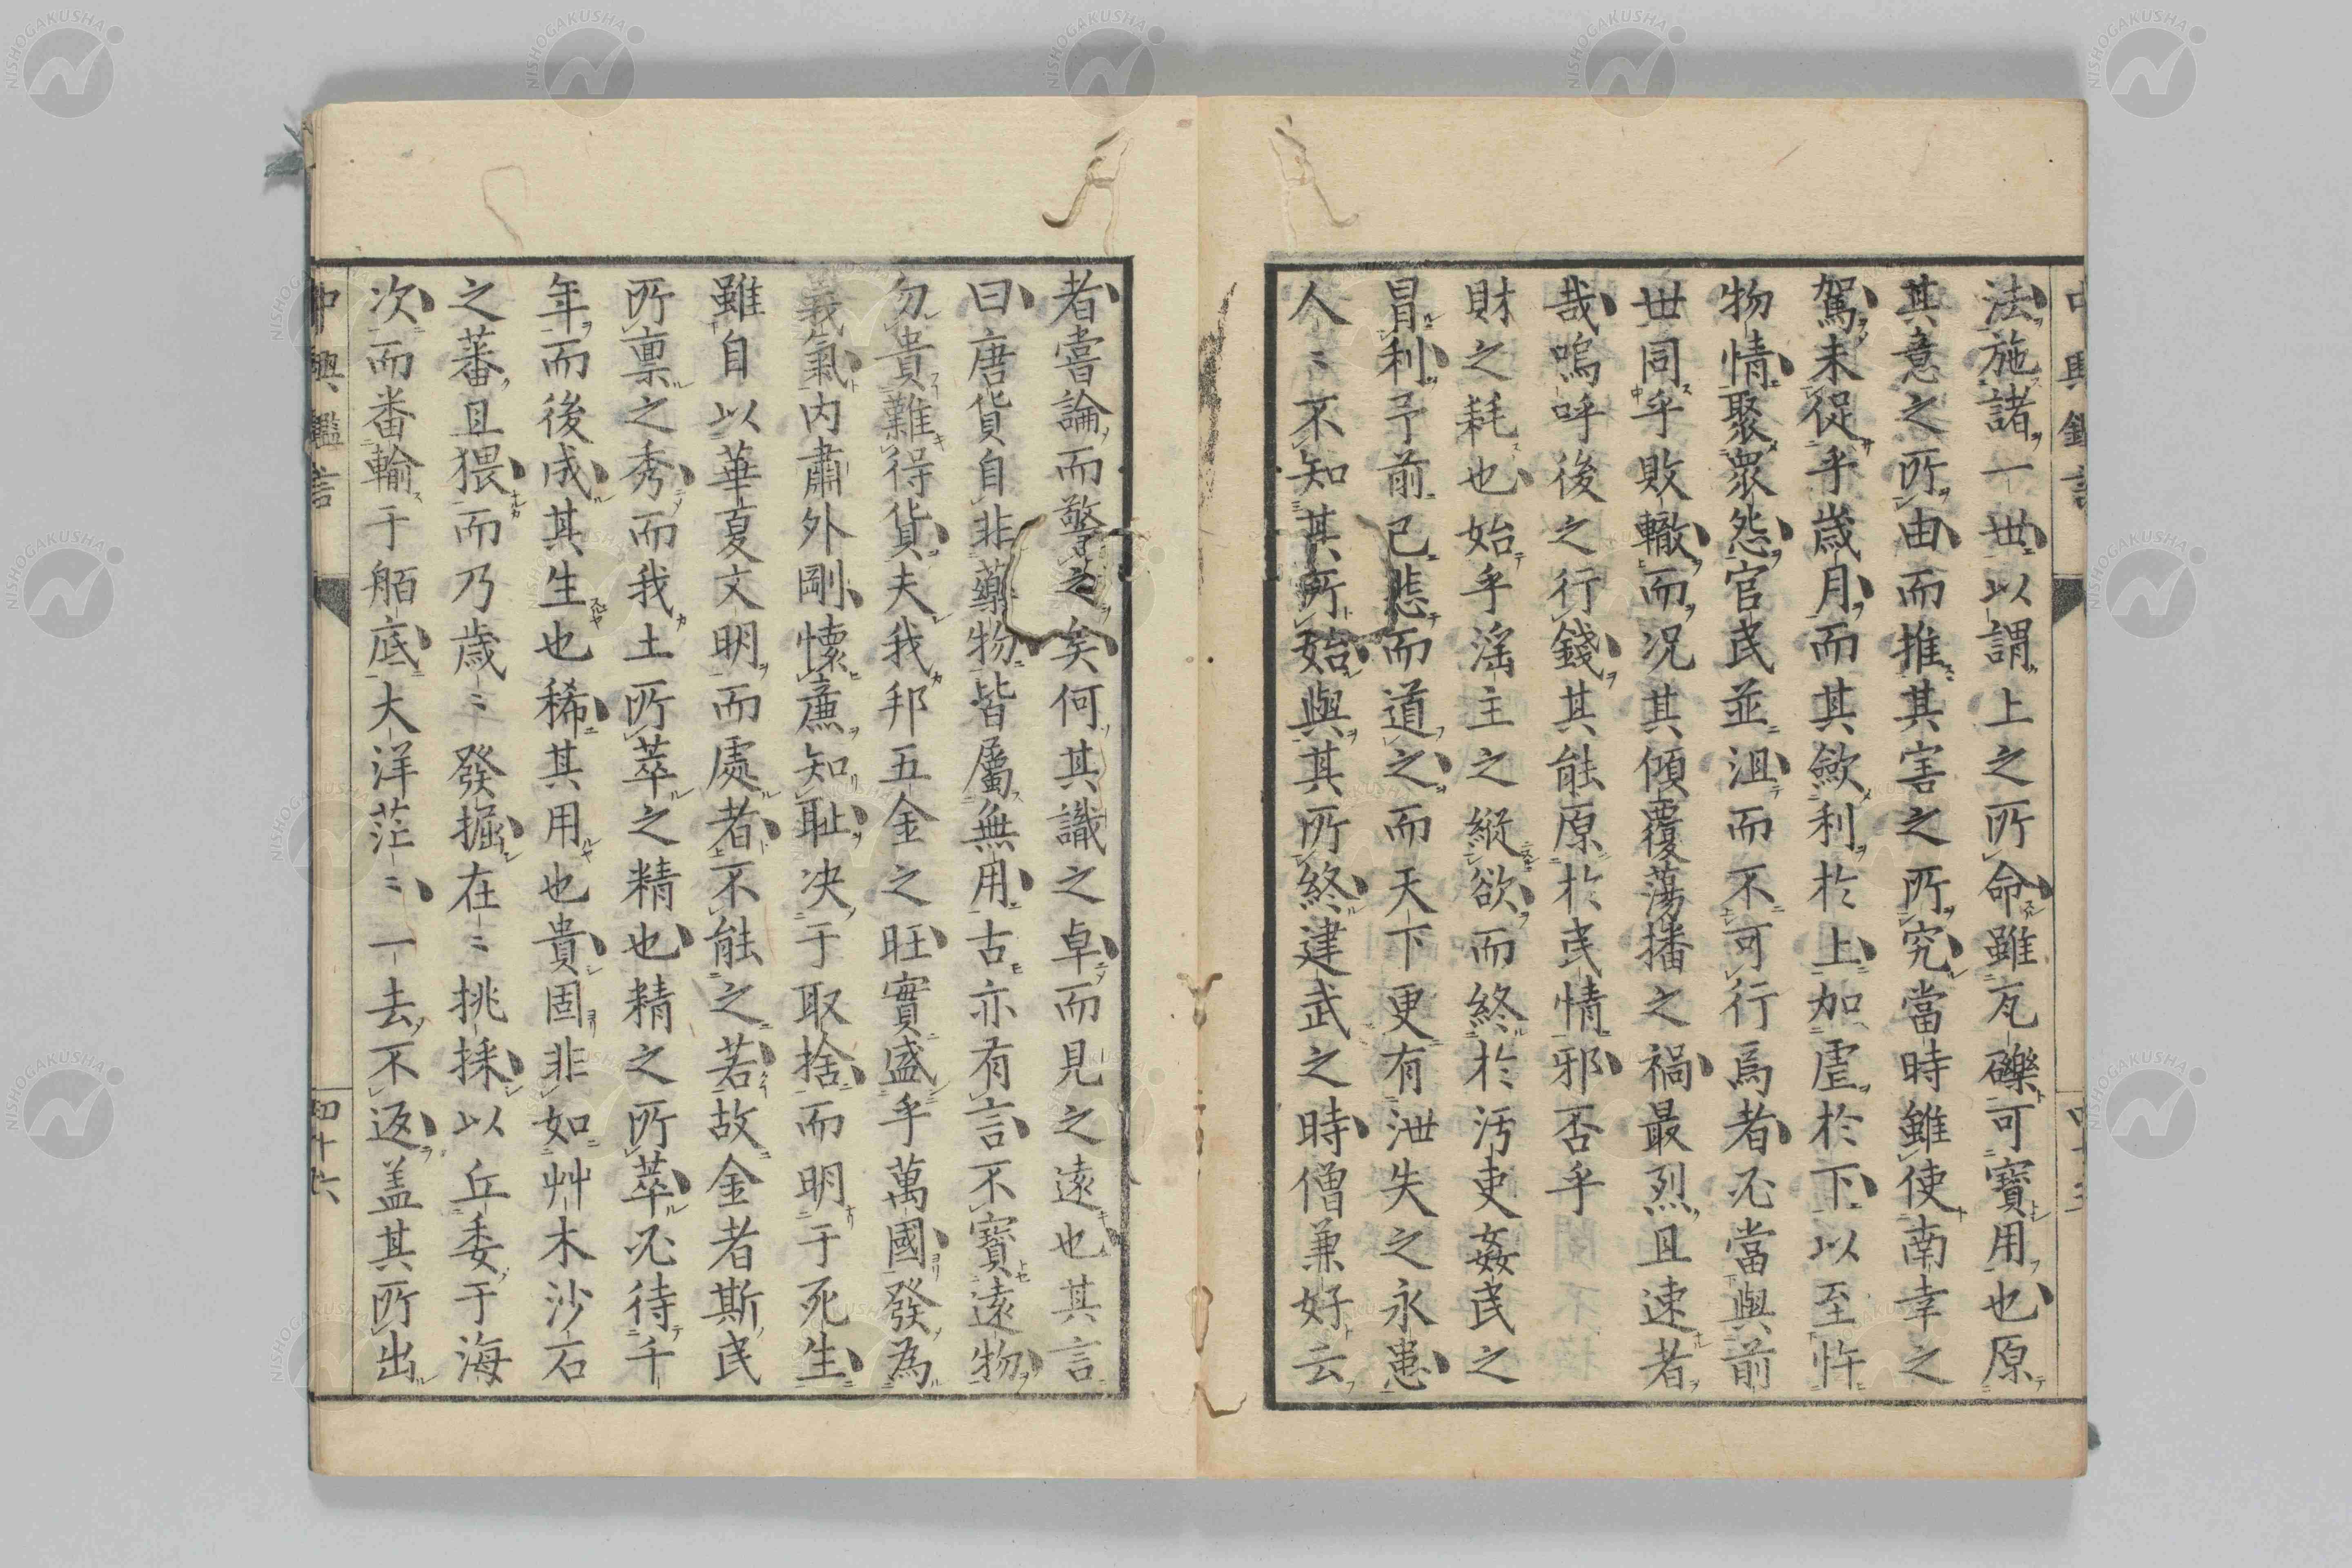 法施諸一世以謂上之所命雖瓦礫可寶用也原
其意之所由而推其害之所究當時雖使南幸之
駕未促乎歲月而其斂利於上加虐於下以至忤
物情聚眾怨官民並沮而不可行焉者必當與前
世同乎敗轍而況其傾覆蕩播之禍最烈且速者
哉嗚呼後之行錢其能原於民情邪否乎
財之耗也始乎淫主之縱欲而終於汚吏姦民之
冒利予前已悲而道之而天下更有泄失之永患
人〻不知其所始與其所終建武之時僧兼好云
者嘗論而警之矣何其識之卓而見之遠也其言
曰唐貨自非藥物皆屬無用古亦有言不寶遠物
勿貴難得貨夫我邦五金之旺實盛乎萬國發為
義氣内肅外剛懷㢘知耻决于取捨而明于死生
雖自以華夏文明而處者不能之若故金者斯民
所稟之秀而我土所萃之精也精之所萃必待千
年而後成其生也稀其用也貴固非如艸木沙石
之蕃且猥而乃歲〻發掘在〻挑採以丘委于海
次而番輸于舶底大洋茫〻一去不返盖其所出
中興鑑言
四十六
NISHOGAKUSHA